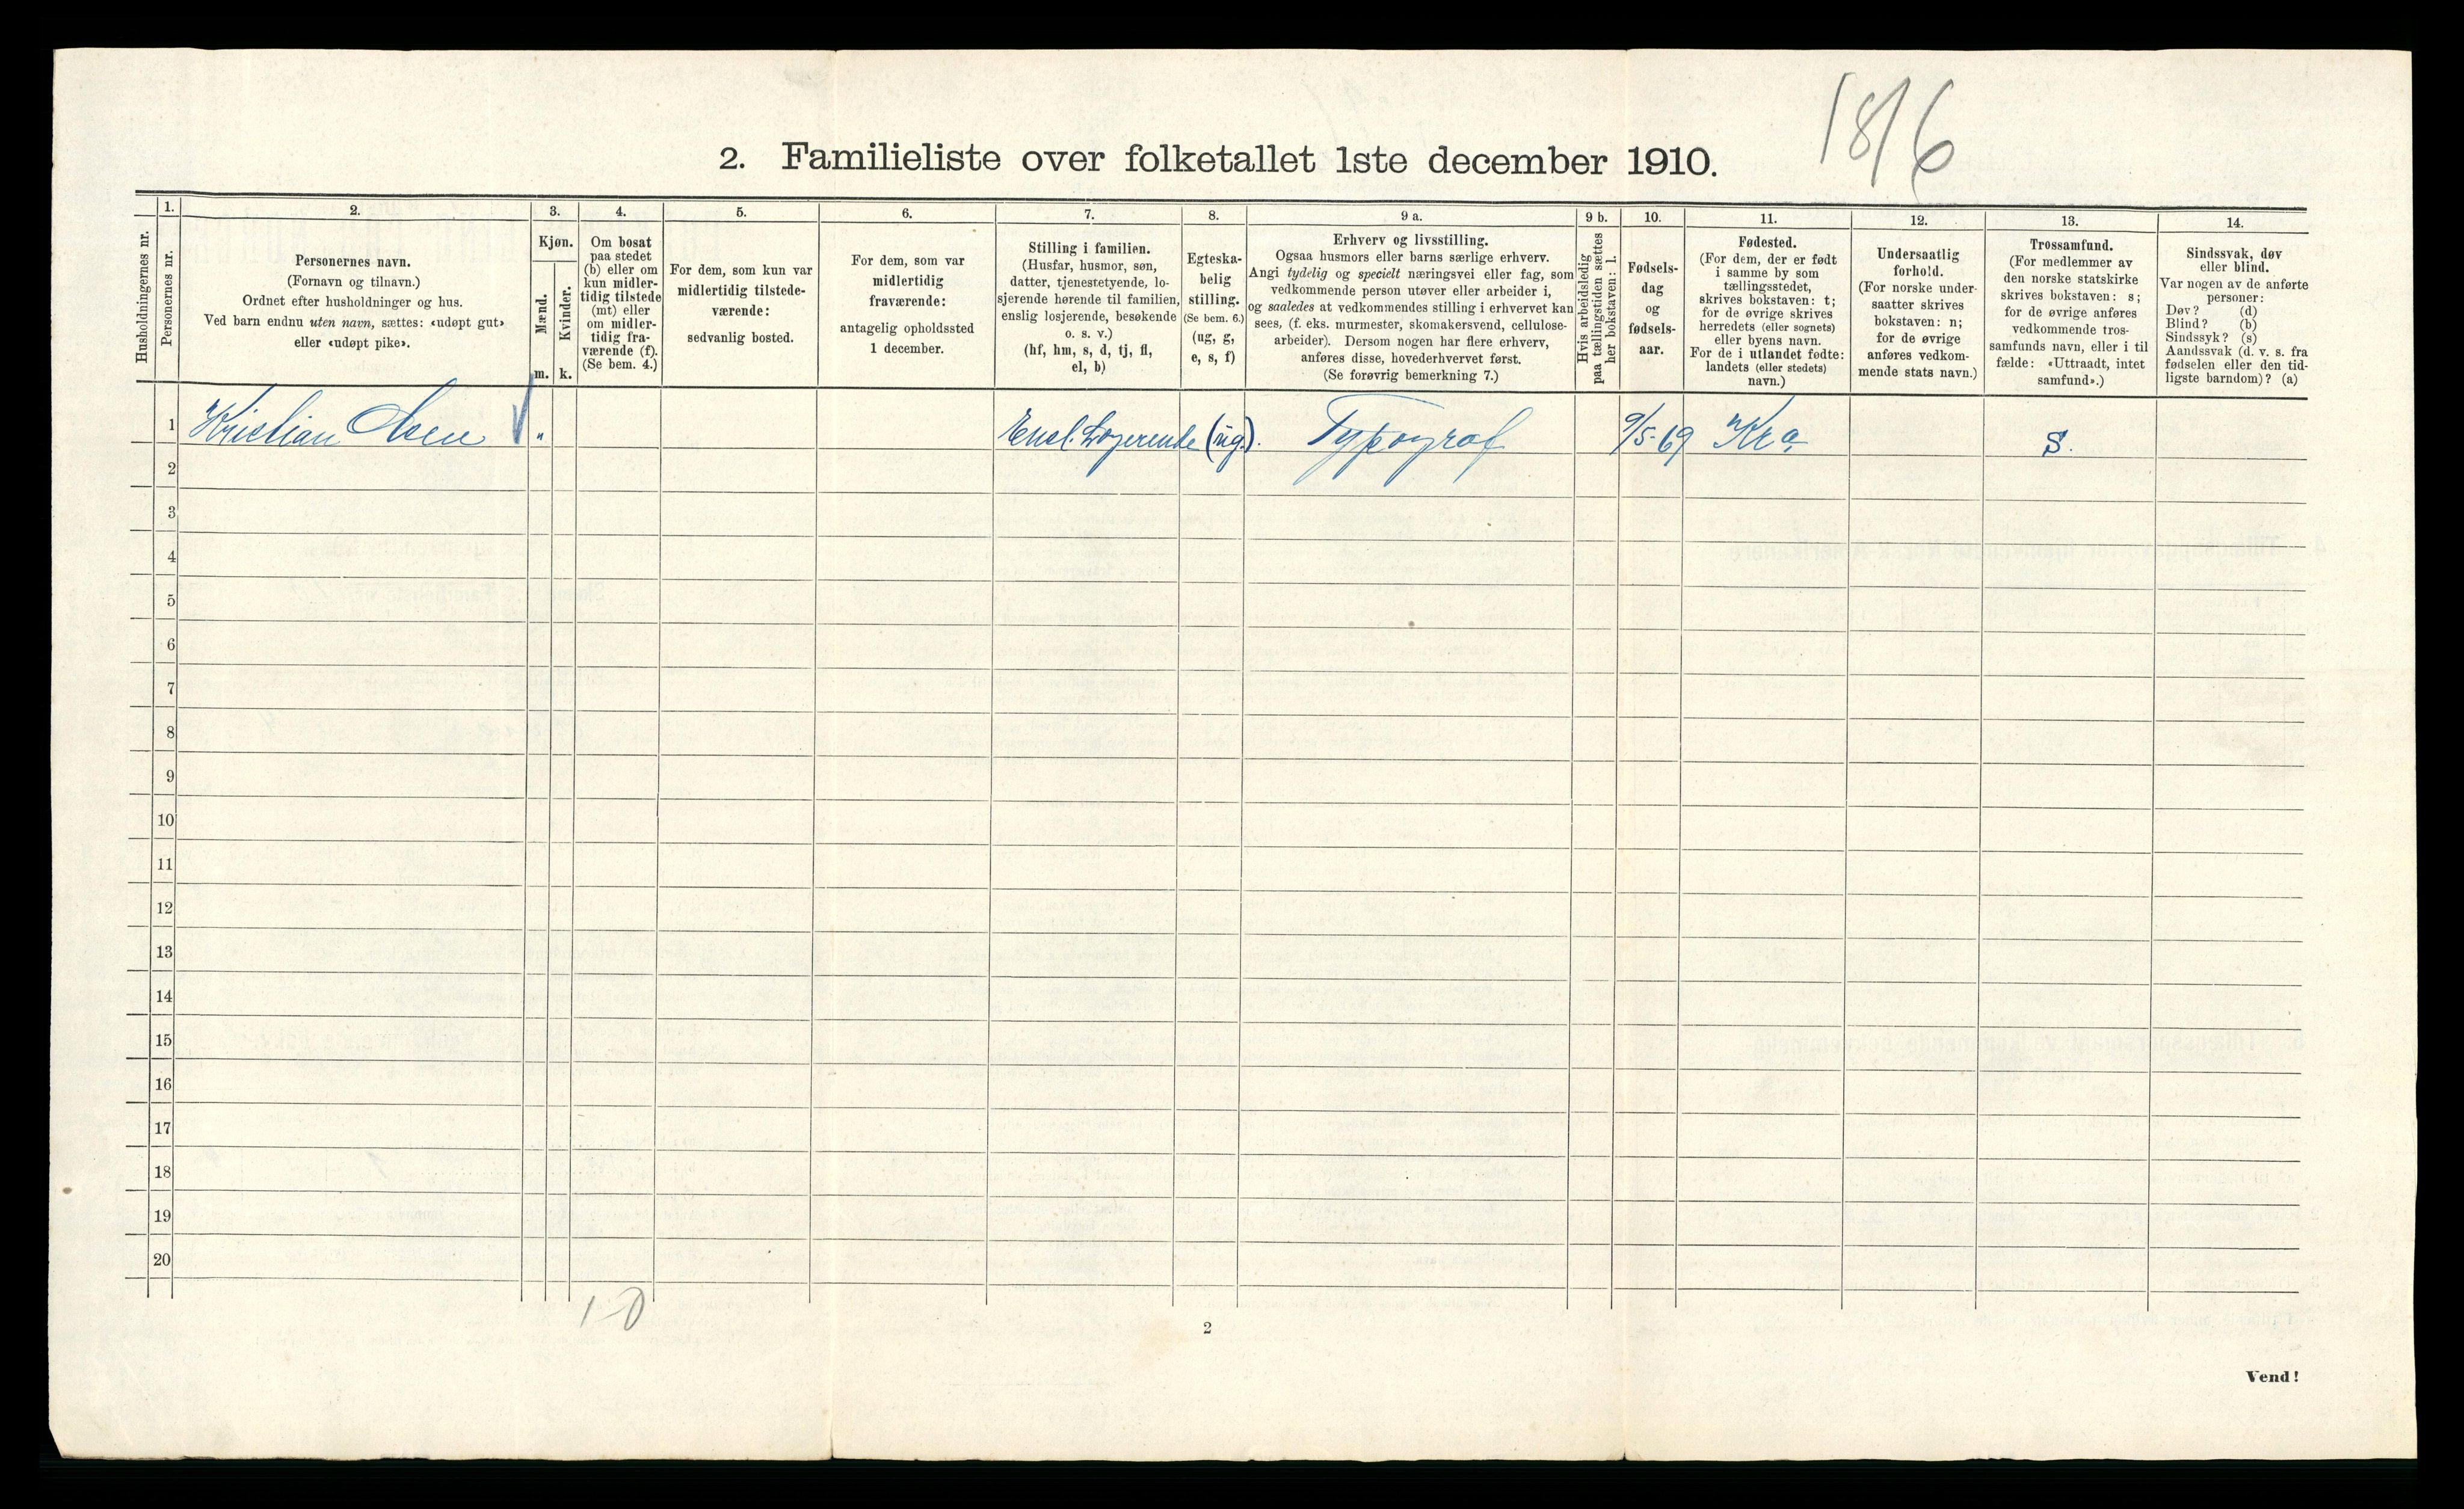 18/6
2. Familieliste over folketallet 1ste december 1910.
Husholdningernes nr.
1.
Personernes nr.
2.
Personernes navn.
(Fornavn og tilnavn.)
Ordnet efter husholdninger og hus.
Ved barn endnu uten navn, sættes: «udøpt gut»
eller «udøpt pike».
3.
Kjøn.
Mænd.
Kvinder.
m.
k.
4.
Om bosat
paa stedet
(b) eller om
kun midler-
tidig tilstede
(mt) eller
om midler-
tidig fra-
værende (f).
(Se bem. 4.)
5.
For dem, som kun var
midlertidig tilstede-
værende:
sedvanlig bosted.
6.
For dem, som var
midlertidig
fraværende:
antagelig opholdssted
1 december.
7.
Stilling i familien.
(Husfar, husmor, søn,
datter, tjenestetyende, lo-
sjerende hørende til familien,
enslig losjerende, besøkende
o. s. v.)
(hf, hm, s, d, tj, fl,
el, b)
8.
Egteska-
belig
stilling.
(Se bem. 6.)
(ug, g,
e, s, f)
9 a.
Erhverv og livsstilling.
Ogsaa husmors eller barns særlige erhverv.
Angi tydelig og specielt næringsvei eller fag, som
vedkommende person utøver eller arbeider i,
og saaledes at vedkommendes stilling i erhvervet kan
sees, (f. eks. murmester, skomakersvend, cellulose-
arbeider). Dersom nogen har flere erhverv,
anføres disse, hovederhvervet først.
(Se forøvrig bemerkning 7.)
9 b.
Hvis arbeidsledig
paa tællingstiden sættes
her bokstaven: l.
10.
Fødsels-
dag
og
fødsels-
aar.
11.
Fødested.
(For dem, der er født
i samme by som
tællingsstedet,
skrives bokstaven: t;
for de øvrige skrives
herredets (eller sognets)
eller byens navn.
For de i utlandet fødte:
landets (eller stedets)
navn.)
12.
Undersaatlig
forhold.
(For norske under-
saatter skrives
bokstaven: n;
for de øvrige
anføres vedkom-
mende stats navn.)
13.
Trossamfund.
(For medlemmer av
den norske statskirke
skrives bokstaven: s;
for de øvrige anføres
vedkommende tros-
samfunds navn, eller i til
fælde: «Uttraadt, intet
samfund».)
14.
Sindssvak, døv
eller blind.
Var nogen av de anførte
personer:
Døv? (d)
Blind? (b)
Sindssyk? (s)
Aandssvak (d. v. s. fra
fødselen eller den tid-
ligste barndom)? (a)
1 Kristian Olsen " Ensl. Logerende (ug). Typograf 9/5-69 Kra. S.
2
3
4
5
6
7
8
9
10
11
12
13
14
15
16
17
18
19
20
1-0
2
Vend!